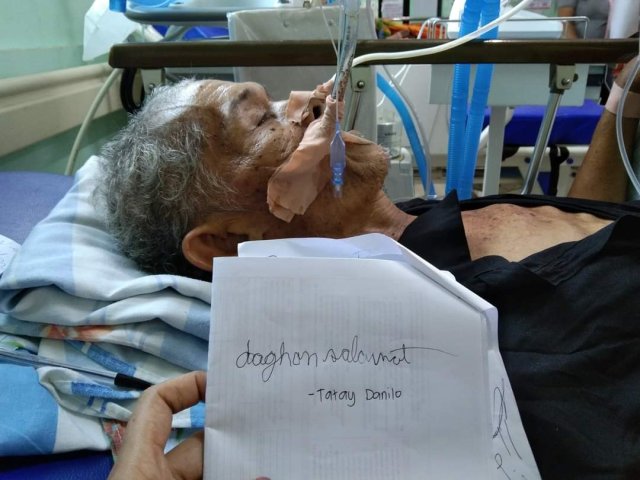 daghan salamat
-Tatay Danilo